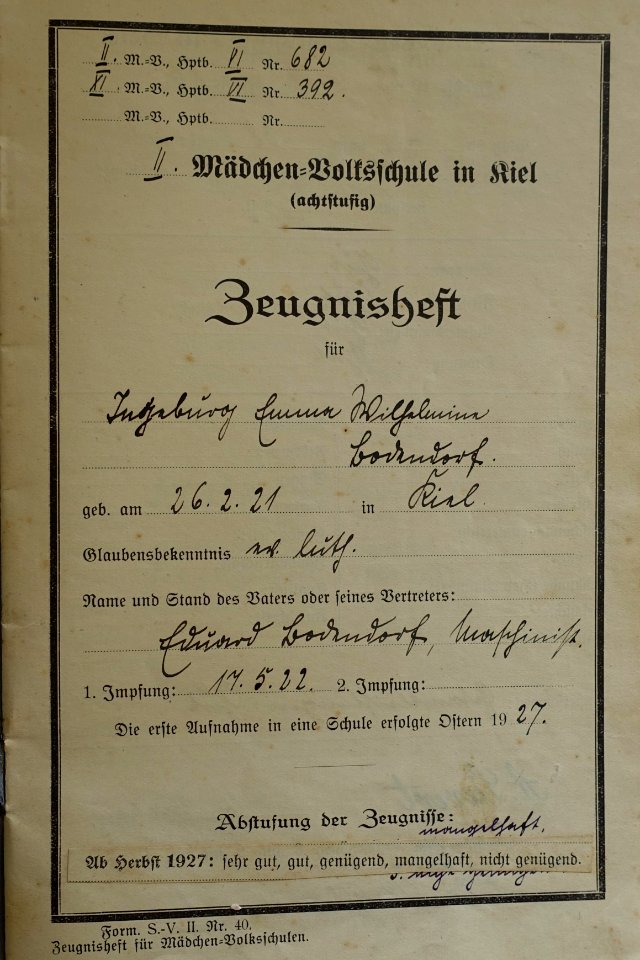 II. M.-V., Hptb. VI Nr. 682
XI. M.-V., Hptb. VI Nr. 392.
M.-V., Hptb. Nr.
II. Mädchen-Volksschule in Kiel
(achtstufig)
Zeugnisheft
für
Ingeburg Emma Wilhelmine
Bodendorf.
geb. am 26.2.21 in Kiel
Glaubensbekenntnis ev. luth.
Name und Stand des Vaters oder seines Vertreters:
Eduard Bodendorf, Maschinist.
1. Impfung: 17.5.22. 2. Impfung:
Die erste Aufnahme in eine Schule erfolgte Ostern 1927.
Abstufung der Zeugnisse:
mangelhaft,
Ab Herbst 1927: sehr gut, gut, genügend, mangelhaft, nicht genügend.
Form. S.-V. II. Nr. 40.
Zeugnisheft für Mädchen-Volksschulen.